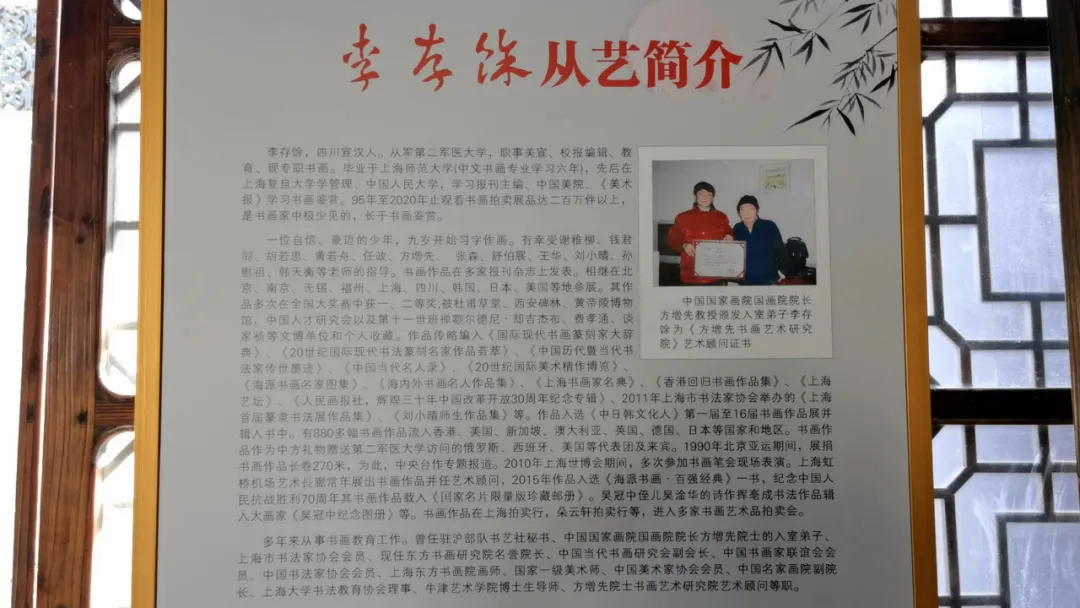 李存馀从艺简介
李存馀，四川宣汉人。从军第二军医大学，职事美宣、校报编辑、教
育、现专职书画。毕业于上海师范大学(中文书画专业学习六年)，先后在
上海复旦大学学管理、中国人民大学，学习报刊主编、中国美院、《美术
报》学习书画鉴赏。95年至2020年止观看书画拍卖展品达二百万件以上，
是书画家中极少见的，长于书画鉴赏。
一位自信、豪迈的少年，九岁开始习字作画。有幸受谢稚柳、钱君
匋、胡若思、黄若舟、任政、方增先、 张森、舒伯展、王华、刘小晴、孙
慰祖、韩天衡等老师的指导。书画作品在多家报刊杂志上发表。相继在北
京、南京、无锡、福州、上海、四川、韩国、日本、美国等地参展。其作
品多次在全国大奖赛中获一、二等奖;被杜甫草堂、西安碑林、黄帝陵博物
馆，中国人才研究会以及第十一世班禅额尔德尼·却吉杰布、费孝通、谈
家桢等文博单位和个人收藏。作品传略编入《国际现代书画篆刻家大辞
典》、《20世纪国际现代书法篆刻名家作品荟萃》、《中国历代暨当代书
法家传世墨迹》、《中国当代名人录》、《20世纪国际美术精作博览》、
《海派书画名家图集》、《海内外书画名人作品集》、《上海书画家名典》、《香港回归书画作品集》、《上海
艺坛》、《人民画报社，辉煌三十年中国改革开放30周年纪念专辑》、2011年上海市书法家协会举办的《上海
首届篆隶书法展作品集》、《刘小晴师生作品集》等。作品入选《中日韩文化人》第一届至16届书画作品展并
辑入书中。有880多幅书画作品流入香港、美国、新加坡、澳大利亚、英国、德国、日本等国家和地区。书画作
品作为中方礼物赠送第二军医大学访问的俄罗斯、西班牙、美国等代表团及来宾。1990年北京亚运期间，展捐
书画作品长卷270米，为此，中央台作专题报道。2010年上海世博会期间，多次参加书画笔会现场表演。上海虹
桥机场艺术長廊常年展出书画作品并任艺术顾问，2015年作品入选《海派书画·百强经典》一书，纪念中国人
民抗战胜利70周年其书画作品载入《国家名片限量版珍藏邮册》。吴冠中侄儿吴淦华的诗作挥毫成书法作品辑
入大画家《吴冠中纪念图册》等。书画作品在上海拍卖行，朵云轩拍卖行等，进入多家书画艺术品拍卖会。
多年来从事书画教育工作。曾任驻沪部队书艺社秘书、中国国家画院国画院院长方增先院士的入室弟子、
上海市书法家协会会员、现任东方书画研究院名誉院长、中国当代书画研究会副会长、中国书画家联谊会会
员。中国书法家协会会员、上海东方书画院画师、国家一级美术师、中国美术家协会会员、中国名家画院副院
长、上海大学书法教育协会理事、牛津艺术学院博士生导师、方增先院士书画艺术研究院艺术顾问等职。
中国国家画院国画院院长
方增先教授颁发入室弟子李存
馀为《方增先书画艺术研究
院》艺术顾问证书